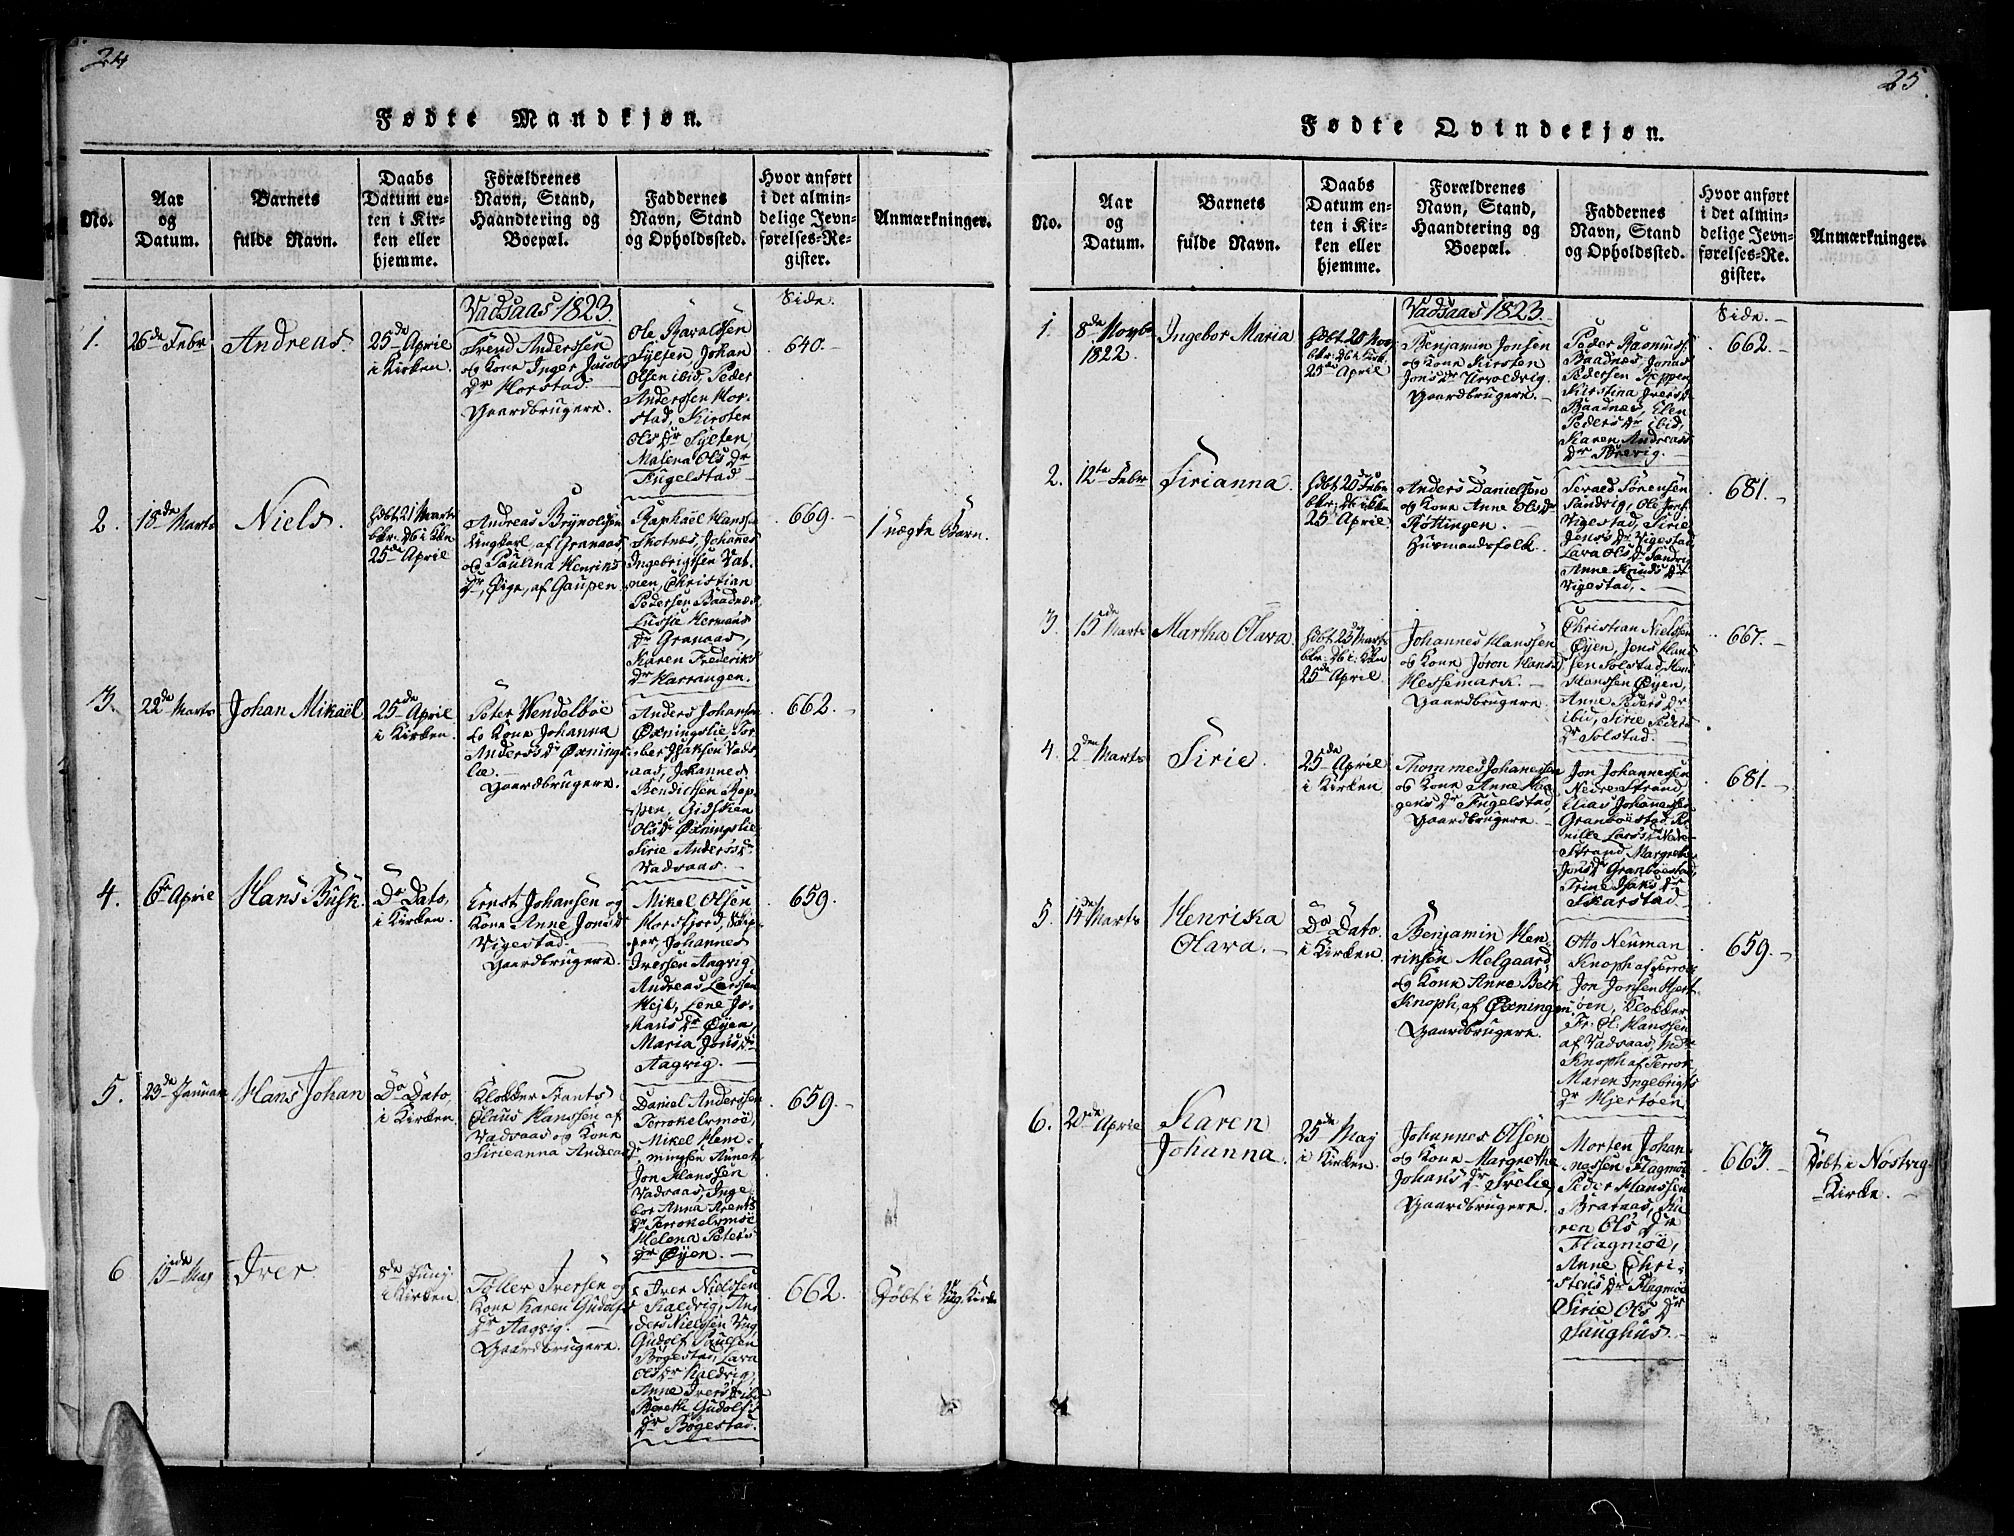 24
Fødte Mandkjøn.
No.
Aar
og
Datum.
Barnets
fulde Navn.
Daabs
Datum en-
ten i Kir-
ken eller
hjemme.
Forældrenes
Navn, Stand,
Haandtering og
Boepæl.
Faddernes
Navn, Stand
og Opholdssted.
Hvor anført
i det almin-
delige Jevn-
førelses-Re-
gister.
Anmærkninger.
Vadsaas 1823
Side.
1.
26de Febr
Andreas.
25de April
i Kirken.
Trend Anderssen
og Kone Inger Jacobs
Dr Horstad.
Gaardbrugere.
Ole
Sylten, Johan
Olsen ibid, Peder
Anderssen Hor-
stad, Kirsten
Ols Dr Sylten,
Malena Ols Dr
Fugelstad
640.
2.
18de Marts
Niels.
hdbt 21 Marts
bkr. D6 i Kkn
25de April
Andreas Brynolfsen
Ungkarl, af Granaas
og Paulina Henriks
Dr, Pige, af Gaupen
Raphaël Hanssen
Skotnæs, Johanes
Ingebrigtsen Vat-
nen, Christian
Pedersen Baadnæs
Lussia Hermans
Dr Granaas,
Karen Frederiks
Dr Harrangen.
669.
1 uægte Barn.
3.
22de Marts
Johan Mikaël
25de April
i Kirken.
Peter Wendelboe
og Kone Johanna
Anders Dr Øxnings-
lie.
Gaardbrugere.
Anders Johansen
Øxningslie, Tor-
ber Isaksen Vads-
aas, Johannes
Bendichsen Rep-
pen, Gidsken
Ols Dr Øxningslie
Sirie Anders Dr
Vadsaas
662.
4.
6te April
Hans Busk
Do Dato,
i Kirken.
Ernst Johansen og
Kone Anne Jons Dr
Vigestad.
Gaardbrugere.
Mikel Olsen
Horsfjord, Skip-
per, Johannes
Iverssen Aagvig
Andreas Larssen
Hejl, Lene Jo-
hans Dr Øyen,
Maria Jons Dr
Aagvig.
659.
5.
23de Januar
Hans Johan
Do Dato,
i Kirken
Klokker Frants
Olaus Hanssen af
Vadsaas og Kone
Sirieanna Andreas
Dr
Daniel Anderssen
Terrakelvmoë,
Mikel Hem-
mingsen Aunet
Jon Hanssen
Vadsaas, Inge-
bor Anna Arents
Dr Terrakelvmoë
Helena Peters
Dr Øyen.
659.
6
15de Maj
Iver.
8de Junj
i Kirken
Töller Iversen og
Kone Karen Gudolfs
Dr Aagvig.
Gaardbrugere.
Iver Nielssen
Kaldvig, An-
ders Nielssen
Gudolf Paulsen
Bøgestad, Lava
Ols Dr Kaldvig,
Anne Ivers Dr ibid
Bereth Gudolfs
Dr Bøgestad.
662.
Döbt i Kirke
25.
Fødte Qvindekjøn.
No.
Aar
og
Datum.
Barnets
fulde Navn.
Daabs
Datum en-
ten i Kir-
ken eller
hjemme.
Forældrenes
Navn, Stand,
Haandtering og
Boepæl.
Faddernes
Navn, Stand
og Opholdssted.
Hvor anført
i det almin-
delige Jevn-
førelses-Re-
gister.
Anmærkninger.
Vadsaas 1823.
Side.
1.
8de Novbr
1822.
Ingebor Maria
hdbt 20 Nov
bkr. D6 i Kkn
25de April
Benjamin Jonsen
og Kone Kirsten
Jons Dr Urvoldvig.
Gaardbrugere.
Peder Rasmuss.
Baadnæs, Jonas
Pedersen Reppen,
Kirstina Ivers Dr
Baadnæs, Elen
Peders Dr ibid,
Karen Andreas
Dr Storevig.
662.
2.
12te Febr
Sirianna.
hdbt 20 Febr
bkr. D6 i Kkn
25de April
Anders Danielsen
og Kone Anne Ols Dr
Røttingen.
Husmandsfolk.
Sörensen
Sandvig, Ole
Vigestad, Sirie
Jens Dr Vigestad
Lava Ols Dr Sandvig
Anne Knuds Dr
Vigestad.
681.
3.
15de Marts
Martha Olava
hdbt 23 Marts
bkr. D6 i Kkn
25de April
Johannes Hanssen
og Kone Jøron Hans Dr
Hessemark.
Gaardbrugere.
Christian Nielssen
Øyen, Jens Han-
sen Solstad, Hans
Hanssen Øyen,
Anne Peders Dr
ibid, Sirie Peders
Dr Solstad.
667.
4.
2den Marts
Sirie.
25de April
i Kirken.
Thommes Johanessen
og Kone Anne Haa-
gens Dr Fugelstad,
Gaardbrugere
Jon Johannessen
Nedre Strand,
Elias Johanessen
Granboestad, Per-
nille Lars Dr Nedre
Strand, Margreth
Jons Dr Granboestad,
Trine Isaks Dr
Skarstad.
681.
5.
14de Marts
Henrika
Olava.
Do Dato
i Kirken.
Benjamin Hen-
riksen Melgaard
og Kone Anne Beck
Knoph, af Øxningen
Gaardbrugere.
Otto Neuman
Knoph af Terrak
Jon Jonsen Hjert-
öen, Klokker
Fr. Ol. Hanssen
af Vadsaas, Mdm
Knoph af Terrak
Maren Ingebrigts
Dr Hjertöen
659.
6.
20de April
Karen
Johanna.
25de Maj
i Kirken.
Johannes Olsen
og Kone Margrethe
Johans Dr Trelie,
Gaardbrugere.
Morten Johan-
nessen Flagmoe
Peder Hanssen
Bratnæs, Ka-
ren Ols Dr
Flagmoe,
Anne Chri-
stens Dr Flagmoe
Sirie Ols Dr
Saughus.
663.
Döbt i Nostvig
Kirke.